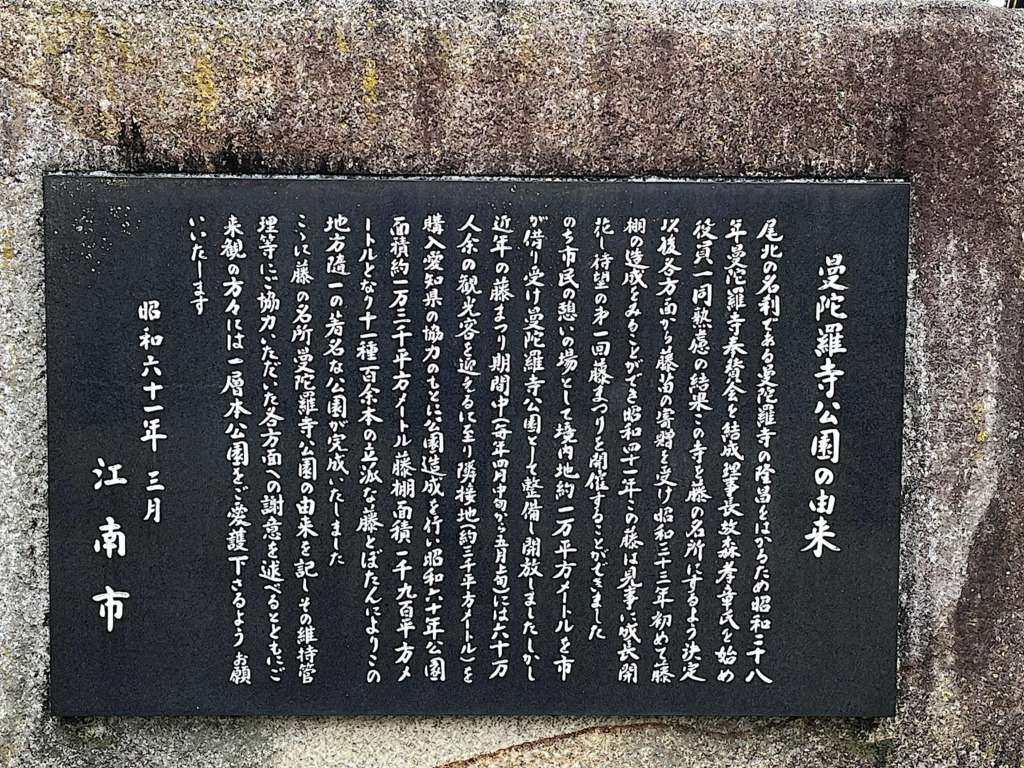 曼陀羅寺公園の由来
尾北の名刹である曼陀羅寺の隆昌をはかるため昭和二十八
年曼陀羅寺奉賛会を結成理事長故森孝章氏を始め
役員一同熟慮の結果この寺を藤の名所にするよう決定
以後各方面から藤苗の寄贈を受け昭和三十三年初めて藤
棚の造成をみることができ昭和四十一年この藤は見事に成長開
花し待望の第一回藤まつりを開催することができました
のち市民の憩いの場として境内地約一万平方メートルを市
が借り受け曼陀羅寺公園として整備し開放しましたしかし
近年の藤まつり期間中(毎年四月中旬から五月上旬)には六十万
人余の観光客を迎えるに至り隣接地(約三千平方メートル)を
購入愛知県の協力のもとに公園造成を行い昭和六十年公園
面積約一万三千平方メートル藤棚面積一千九百平方メ
ートルとなり十一種百余本の立派な藤とぼたんによりこの
地方随一の著名な公園が完成いたしました
ここに藤の名所曼陀羅寺公園の由来を記しその維持管
理等にご協力いただいた各方面への謝意を述べるとともにご
来観の方々には一層本公園をご愛護下さるようお願
いいたします
昭和六十一年三月
江南市